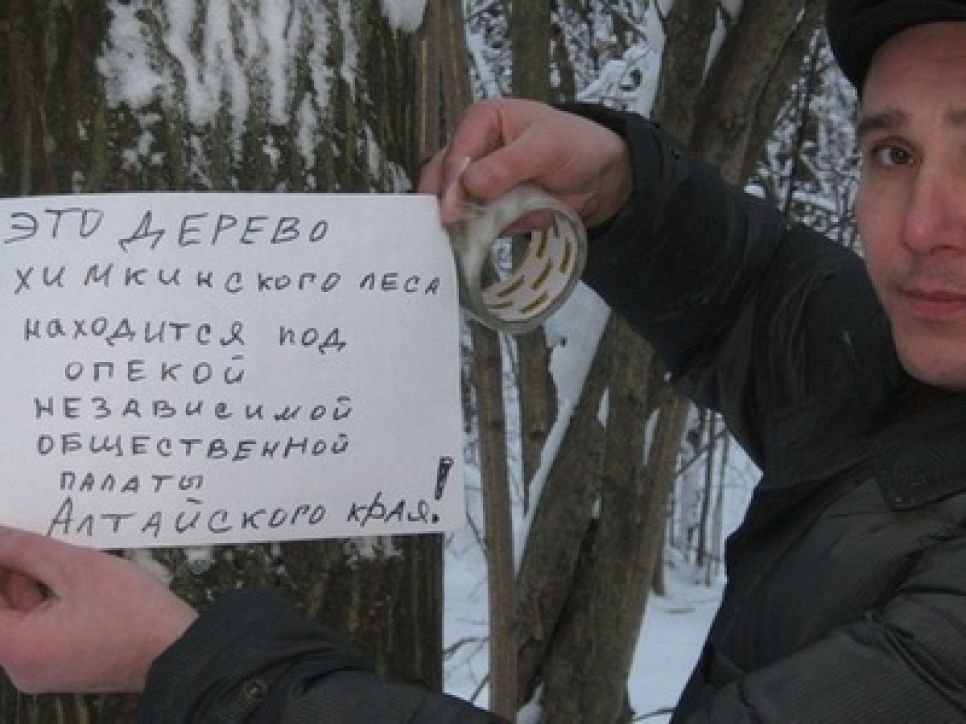 ЭТО ДЕРЕВО
ХИМКИНСКОГО ЛЕСА
НАХОДИТСЯ ПОД
ОПЕКОЙ
НЕЗАВИСИМОЙ
ОБЩЕСТВЕННОЙ
ПАЛАТЫ
АЛТАЙСКОГО КРАЯ!